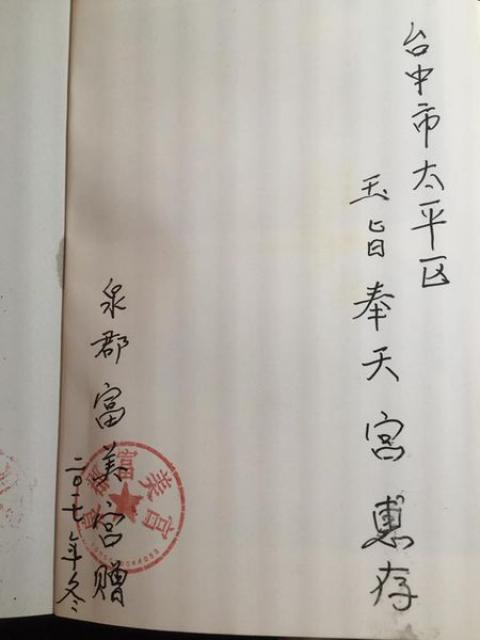 台中市太平区
玉旨奉天宫惠存
泉郡富美宫赠
二〇一七年冬
富美宫